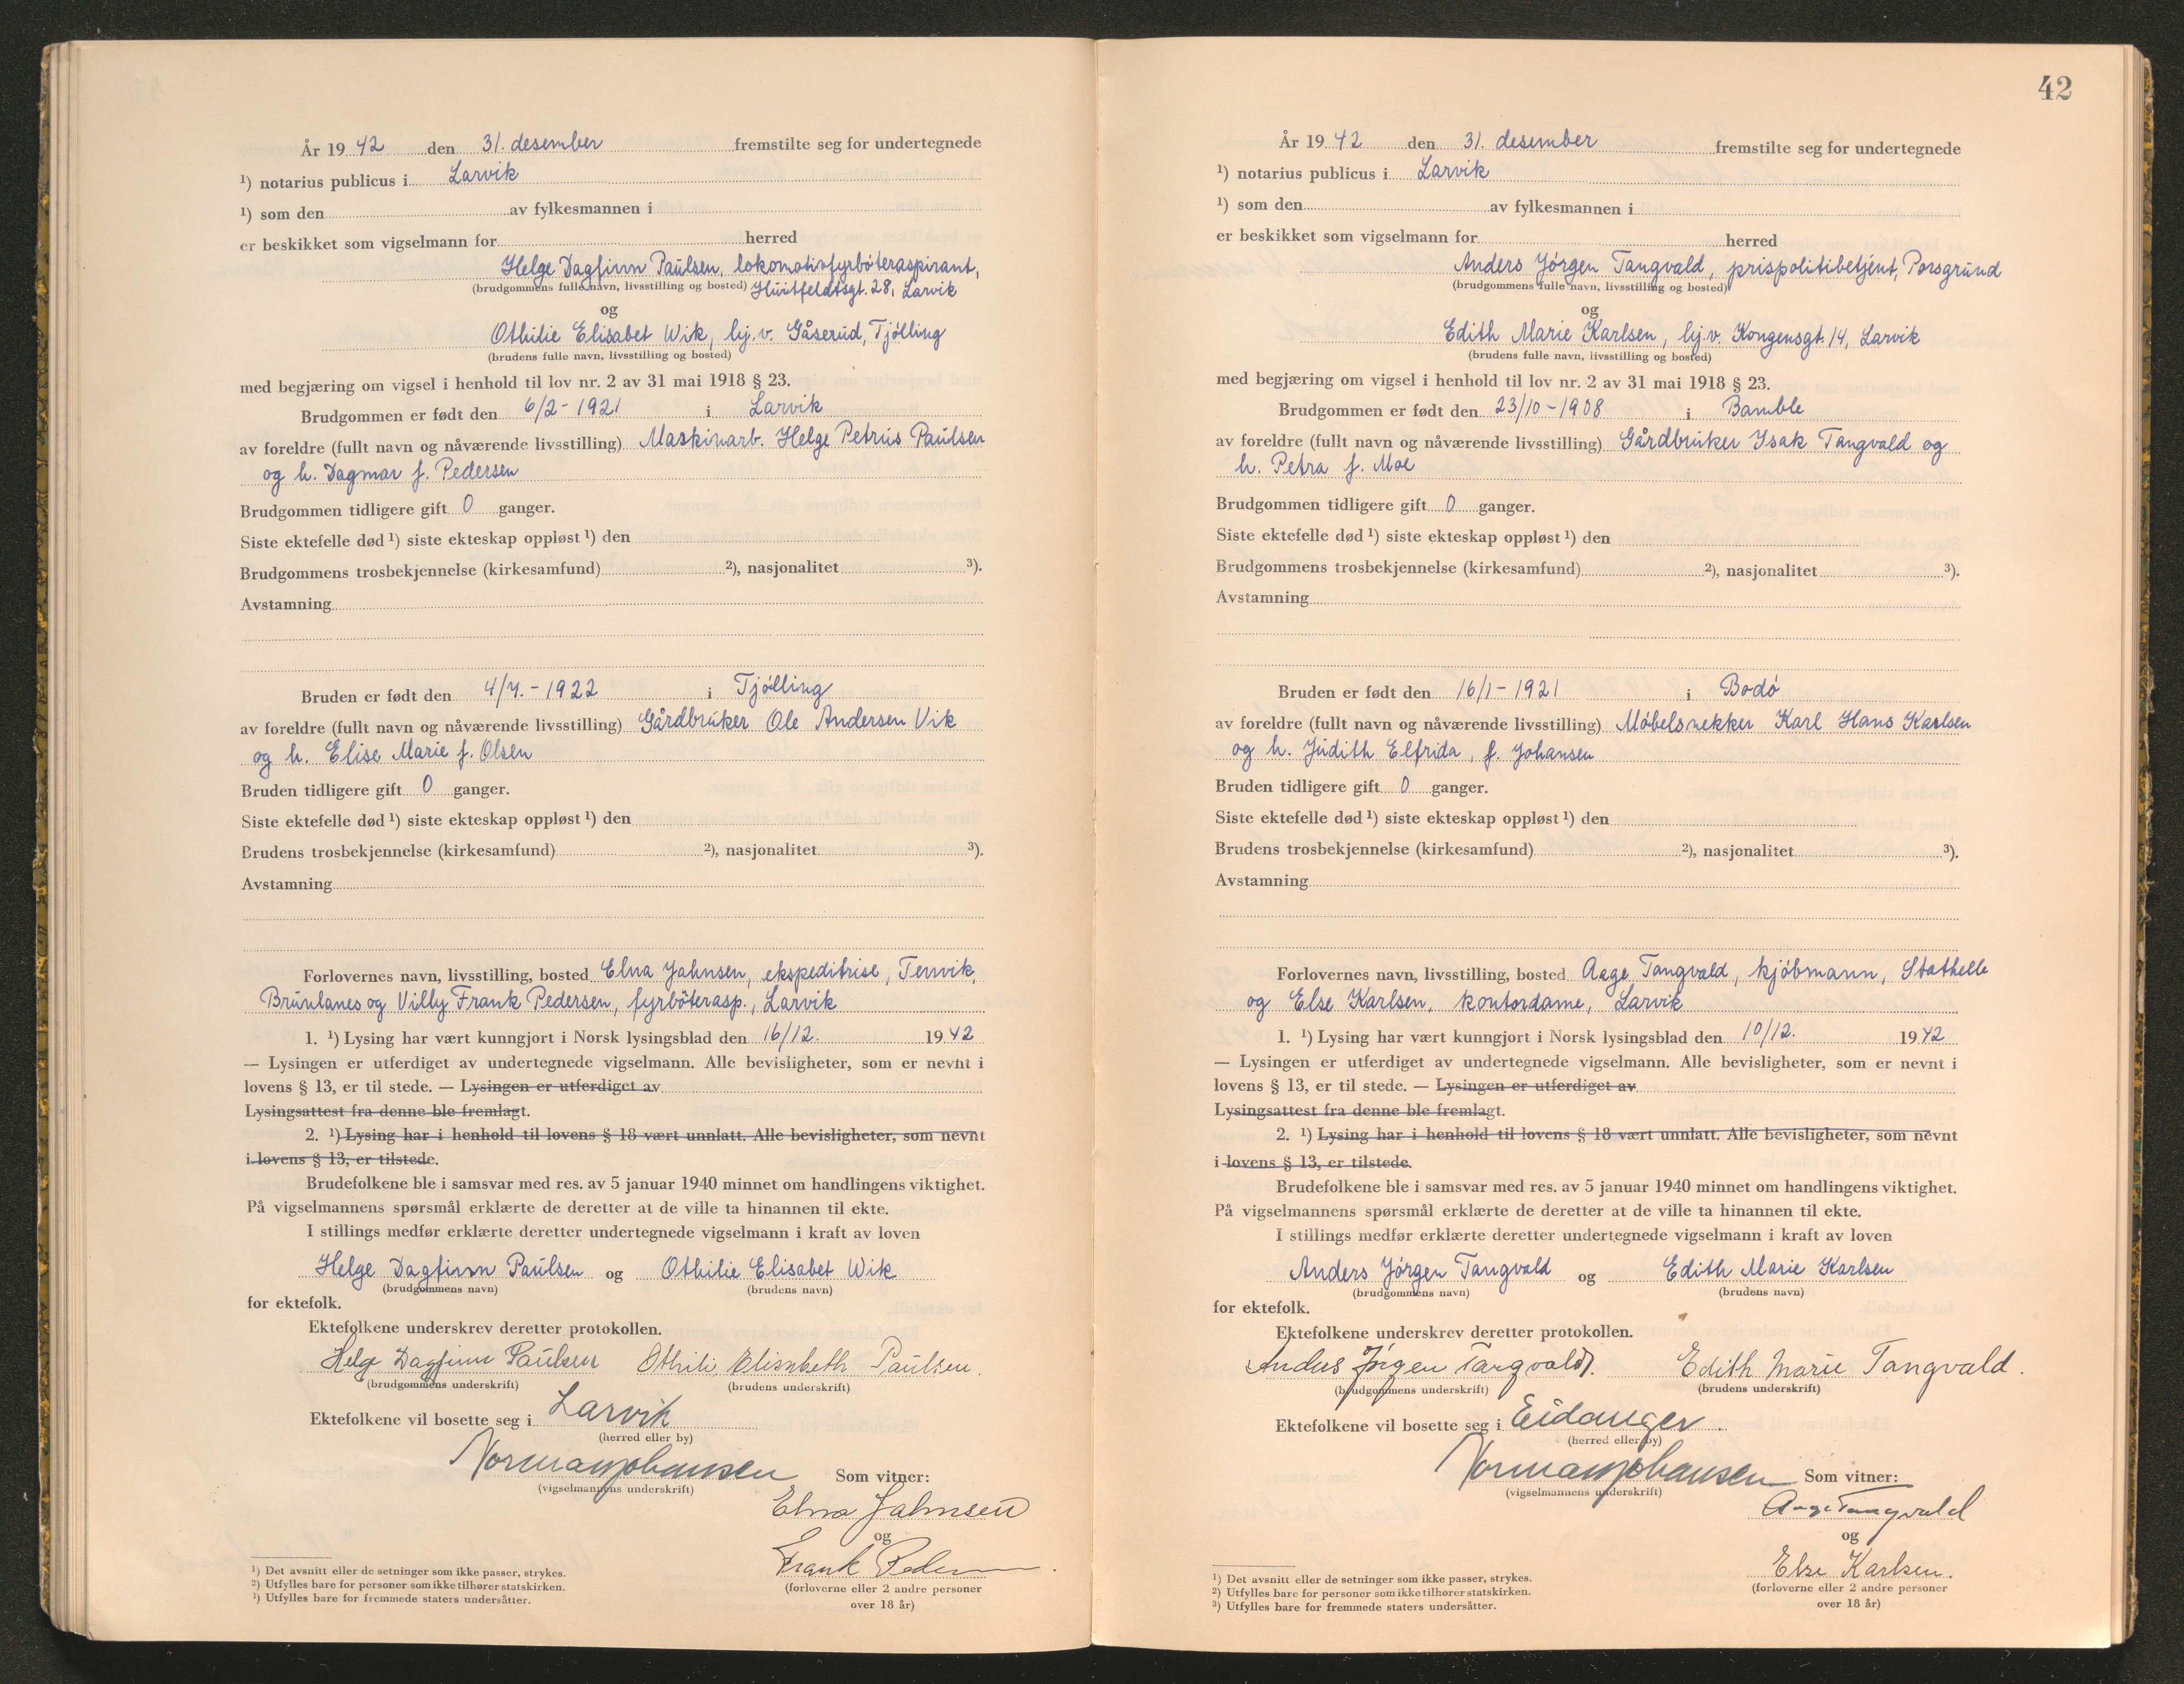 År 19 42 den 31. desember fremstilte seg for undertegnede
¹) notarius publicus i Larvik
¹) som den av fylkesmannen i
er beskikket som vigselmann for herred
Helge Dagfinn Paulsen, lokomotivfyrbøteraspirant,
(brudgommens fulle navn, livsstilling og bosted) Huitfeldtsgt. 28, Larvik
og
Othilie Elisabet Wik, hj. v. Gåserud, Tjølling
(brudens fulle navn, livsstilling og bosted)
med begjæring om vigsel i henhold til lov nr. 2 av 31 mai 1918 § 23.
Brudgommen er født den 6/2 - 1921 i Larvik
av foreldre (fullt navn og nåværende livsstilling) Maskinarb. Helge Petrus Paulsen
og h. Dagmar f. Pedersen
Brudgommen tidligere gift 0 ganger.
Siste ektefelle død ¹) siste ekteskap oppløst ¹) den
Brudgommens trosbekjennelse (kirkesamfund) ²), nasjonalitet ³).
Avstamning
Bruden er født den 4/4. - 1922 i Tjølling
av foreldre (fullt navn og nåværende livsstilling) Gårdbruker Ole Andersen Vik
og h. Elise Marie f. Olsen
Bruden tidligere gift 0 ganger.
Siste ektefelle død ¹) siste ekteskap oppløst ¹) den
Brudens trosbekjennelse (kirkesamfund) ²), nasjonalitet ³).
Avstamning
Forlovernes navn, livsstilling, bosted Elna Jahnsen, ekspeditrise, Tenvik,
Brunlanes og Villy Frank Pedersen, fyrbøterasp., Larvik
1. ¹) Lysing har vært kunngjort i Norsk lysingsblad den 16/12. 19 42
— Lysingen er utferdiget av undertegnede vigselmann. Alle bevisligheter, som er nevnt i
lovens § 13, er til stede. — Lysingen er utferdiget av
Lysingsattest fra denne ble fremlagt.
2. ¹) Lysing har i henhold til lovens § 18 vært unnlatt. Alle bevisligheter, som nevnt
i lovens § 13, er tilstede.
Brudefolkene ble i samsvar med res. av 5 januar 1940 minnet om handlingens viktighet.
På vigselmannens spørsmål erklærte de deretter at de ville ta hinannen til ekte.
I stillings medfør erklærte deretter undertegnede vigselmann i kraft av loven
Helge Dagfinn Paulsen og Othilie Elisabet Wik
(brudgommens navn) (brudens navn)
for ektefolk.
Ektefolkene underskrev deretter protokollen.
Helge Dagfinn Paulsen Othili Elisabeth Paulsen.
(brudgommens underskrift) (brudens underskrift)
Ektefolkene vil bosette seg i Larvik
(herred eller by)
Norman Johansen Som vitner:
(vigselmannens underskrift)
Elna Jahnsen
og
Frank Pedersen
(forloverne eller 2 andre personer
over 18 år)
¹) Det avsnitt eller de setninger som ikke passer, strykes.
²) Utfylles bare for personer som ikke tilhører statskirken.
³) Utfylles bare for fremmede staters undersåtter.
42
År 19 42 den 31. desember fremstilte seg for undertegnede
¹) notarius publicus i Larvik
¹) som den av fylkesmannen i
er beskikket som vigselmann for herred
Anders Jørgen Tangvald, prispolitibetjent, Porsgrund
(brudgommens fulle navn, livsstilling og bosted)
og
Edith Marie Karlsen, hj. v. Kongensgt. 14, Larvik
(brudens fulle navn, livsstilling og bosted)
med begjæring om vigsel i henhold til lov nr. 2 av 31 mai 1918 § 23.
Brudgommen er født den 23/10 - 1908 i Bamble
av foreldre (fullt navn og nåværende livsstilling) Gårdbruker Ysak Tangvald og
h. Petra f. Moe
Brudgommen tidligere gift 0 ganger.
Siste ektefelle død ¹) siste ekteskap oppløst ¹) den
Brudgommens trosbekjennelse (kirkesamfund) ²), nasjonalitet ³).
Avstamning
Bruden er født den 16/1 - 1921 i Bodø
av foreldre (fullt navn og nåværende livsstilling) Møbelsnekker Karl Hans Karlsen
og h. Judith Elfrida, f. Johansen
Bruden tidligere gift 0 ganger.
Siste ektefelle død ¹) siste ekteskap oppløst ¹) den
Brudens trosbekjennelse (kirkesamfund) ²), nasjonalitet ³).
Avstamning
Forlovernes navn, livsstilling, bosted Aage Tangvald, kjøbmann, Stathelle
og Else Karlsen, kontordame, Larvik
1. ¹) Lysing har vært kunngjort i Norsk lysingsblad den 10/12. 19 42
— Lysingen er utferdiget av undertegnede vigselmann. Alle bevisligheter, som er nevnt i
lovens § 13, er til stede. — Lysingen er utferdiget av
Lysingsattest fra denne ble fremlagt.
2. ¹) Lysing har i henhold til lovens § 18 vært unnlatt. Alle bevisligheter, som nevnt
i lovens § 13, er tilstede.
Brudefolkene ble i samsvar med res. av 5 januar 1940 minnet om handlingens viktighet.
På vigselmannens spørsmål erklærte de deretter at de ville ta hinannen til ekte.
I stillings medfør erklærte deretter undertegnede vigselmann i kraft av loven
Anders Jørgen Tangvald og Edith Marie Karlsen
(brudgommens navn) (brudens navn)
for ektefolk.
Ektefolkene underskrev deretter protokollen.
Anders Jørgen Tangvald. Edith Marie Tangvald.
(brudgommens underskrift) (brudens underskrift)
Ektefolkene vil bosette seg i Eidanger.
(herred eller by)
Norman Johansen Som vitner:
(vigselmannens underskrift)
Aage Tangvald
og
Else Karlsen.
(forloverne eller 2 andre personer
over 18 år)
¹) Det avsnitt eller de setninger som ikke passer, strykes.
²) Utfylles bare for personer som ikke tilhører statskirken.
³) Utfylles bare for fremmede staters undersåtter.